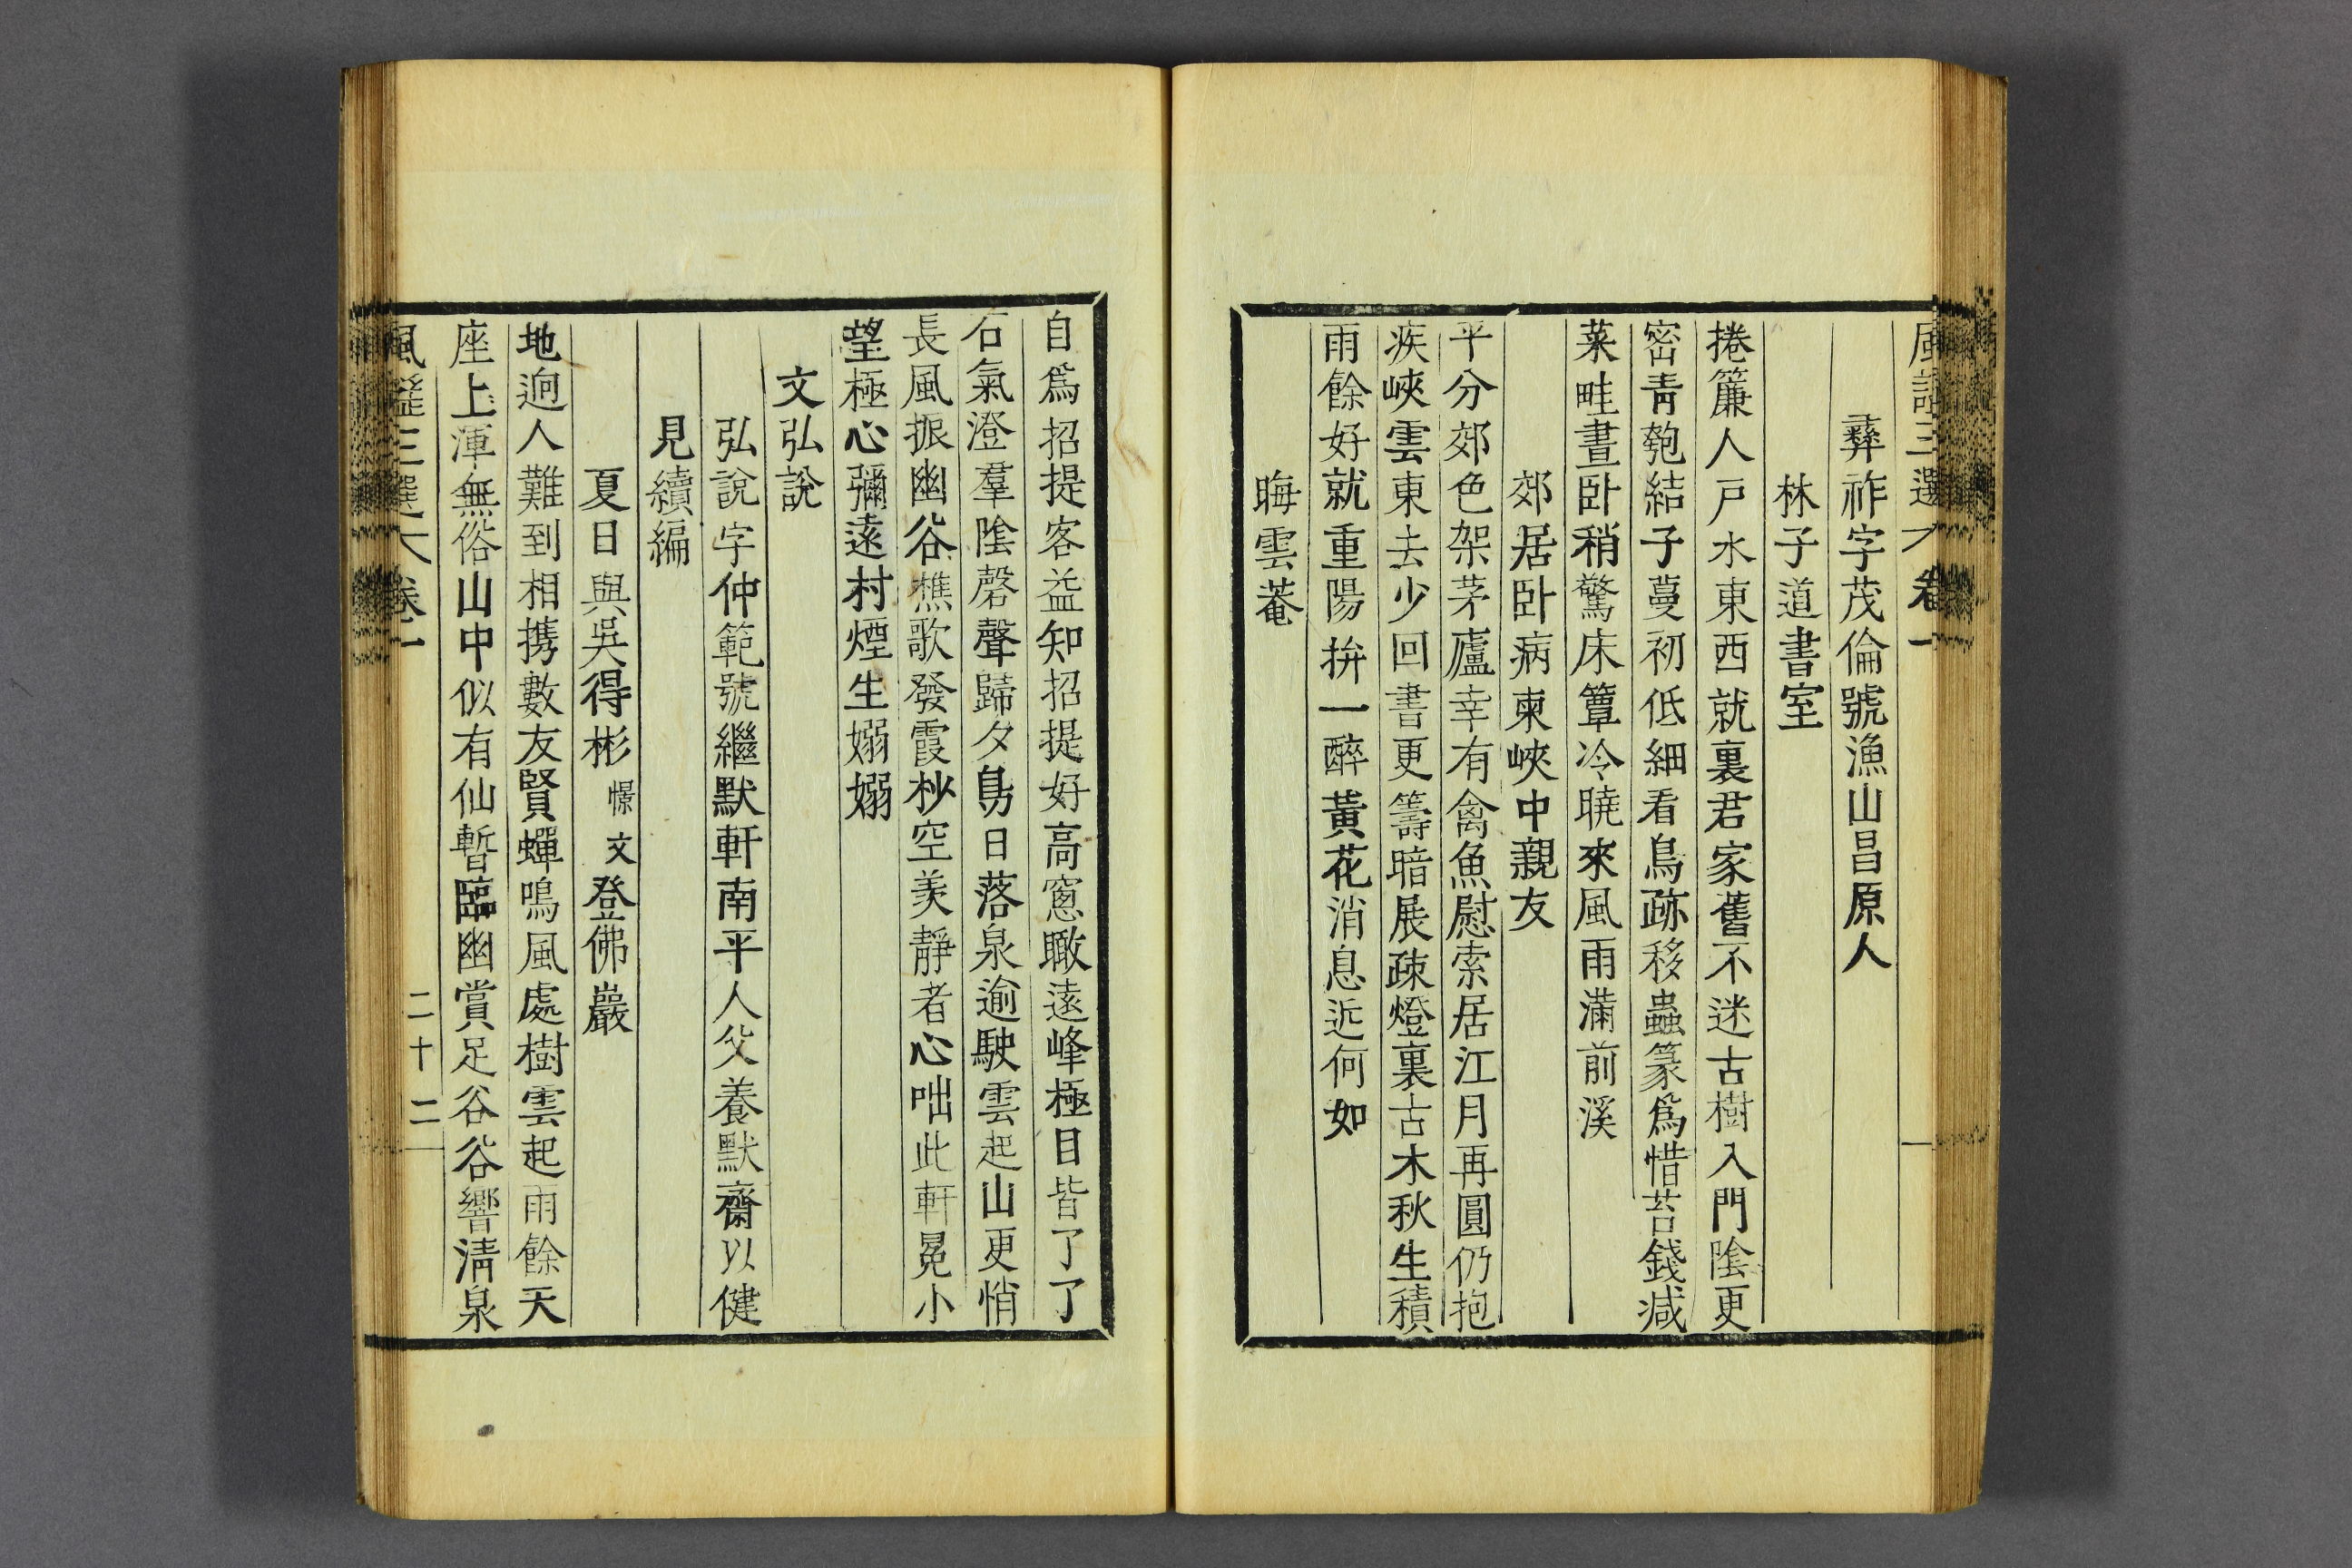 風謠三選 卷一
彛祚字茂倫號漁山昌原人
林子道書室
捲簾人戶水東西就裏君家舊不迷古樹入門陰更
密靑匏結子蔓初低細看鳥跡移蟲篆爲惜苔錢減
菜畦晝卧稍驚床簟冷曉來風雨滿前溪
郊居卧病柬峽中親友
平分郊色架茅廬幸有禽魚慰索居江月再圓仍抱
疾峽雲東去少回書更籌暗展疎燈裏古木秋生積
雨餘好就重陽拚一醉黃花消息近何如
晦雲菴
自爲招提客益知招提好高窓瞰遠峰極目皆了了
石氣澄羣陰磬聲歸夕鳥日落泉逾駛雲起山更悄
長風振幽谷樵歌發霞杪空羨靜者心咄此軒冕小
望極心彌遠村煙生嫋嫋
文弘說
弘說字仲範號繼默軒南平人父養默齋以健
見續編
夏日與吳得彬 憬文 登佛巖
地逈人難到相携數友賢蟬鳴風處樹雲起雨餘天
座上渾無俗山中似有仙暫臨幽賞足谷谷響淸泉
風謠三選 卷一 二十二